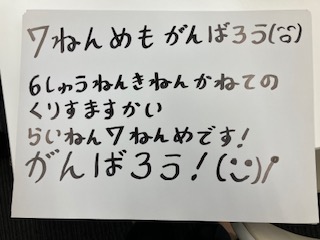 7ねんめも がんばろう(^o^)
6しゅうねんきねんかねての
くりすますかい
らいねん7ねんめです!
がんばろう!(^ ^)/